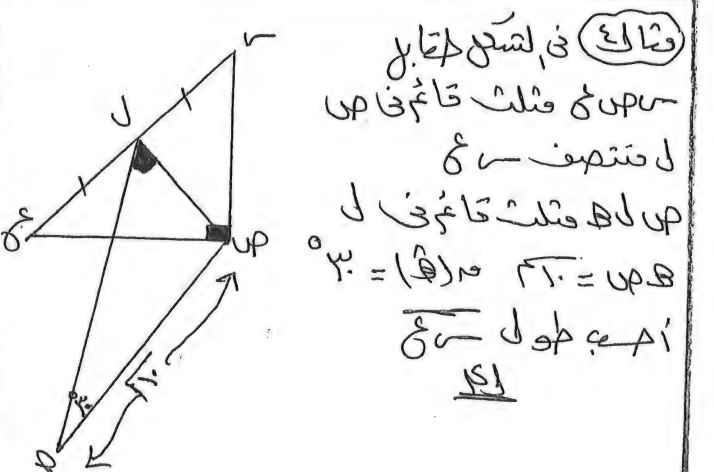 مثال ٤ فى الشكل المقابل
س ص ع مثلث قائم فى ص
ل منتصف س ع
ص ل ه مثلث قائم فى ل
ه ص = ١٠ سم ق(ه) = ٣٠°
أحسب طول س ع
الحل
س
ل
ع
ص
١٠ سم
٣٠°
ه